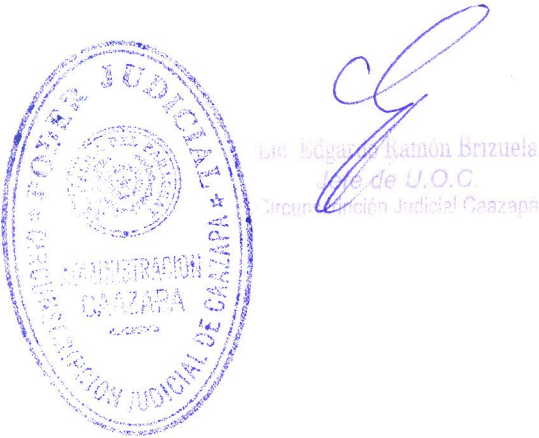 PODER JUDICIAL
CIRCUNSCRIPCION JUDICIAL DE CAAZAPA
ADMINISTRACION
CAAZAPA
Lic. Edgardo Ramón Brizuela
Jefe de U.O.C.
Circunscripción Judicial Caazapá